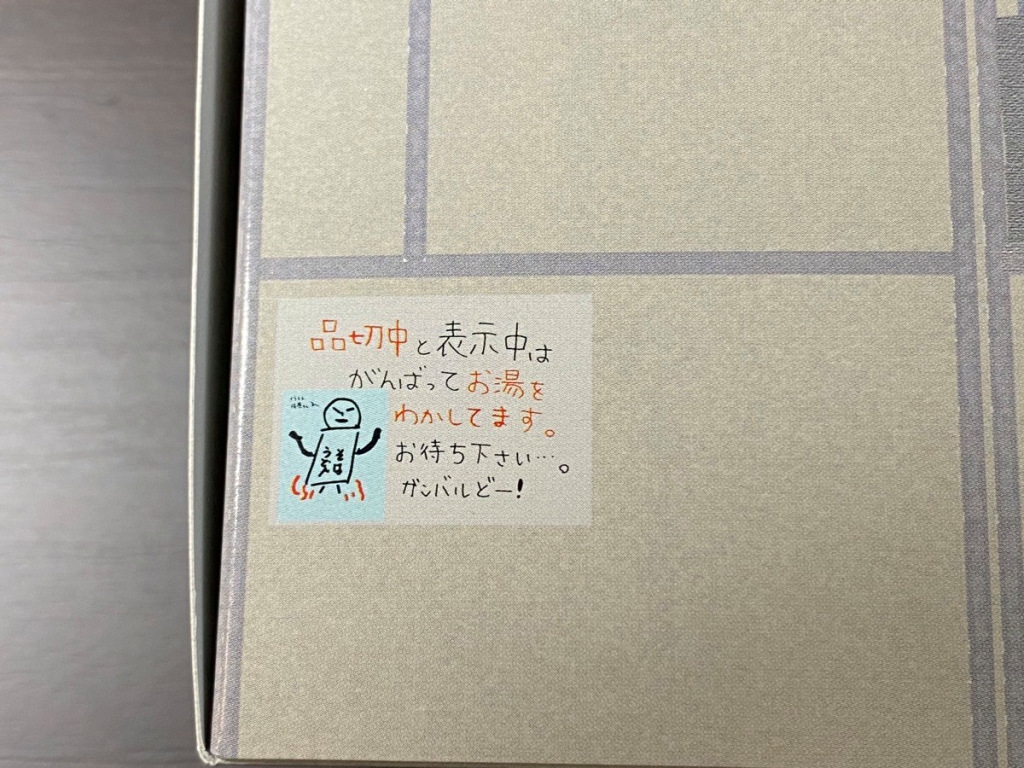 品切中と表示中は
がんばってお湯を
わかしてます。
お待ち下さい…。
ガンバルどー!
そば
うどん